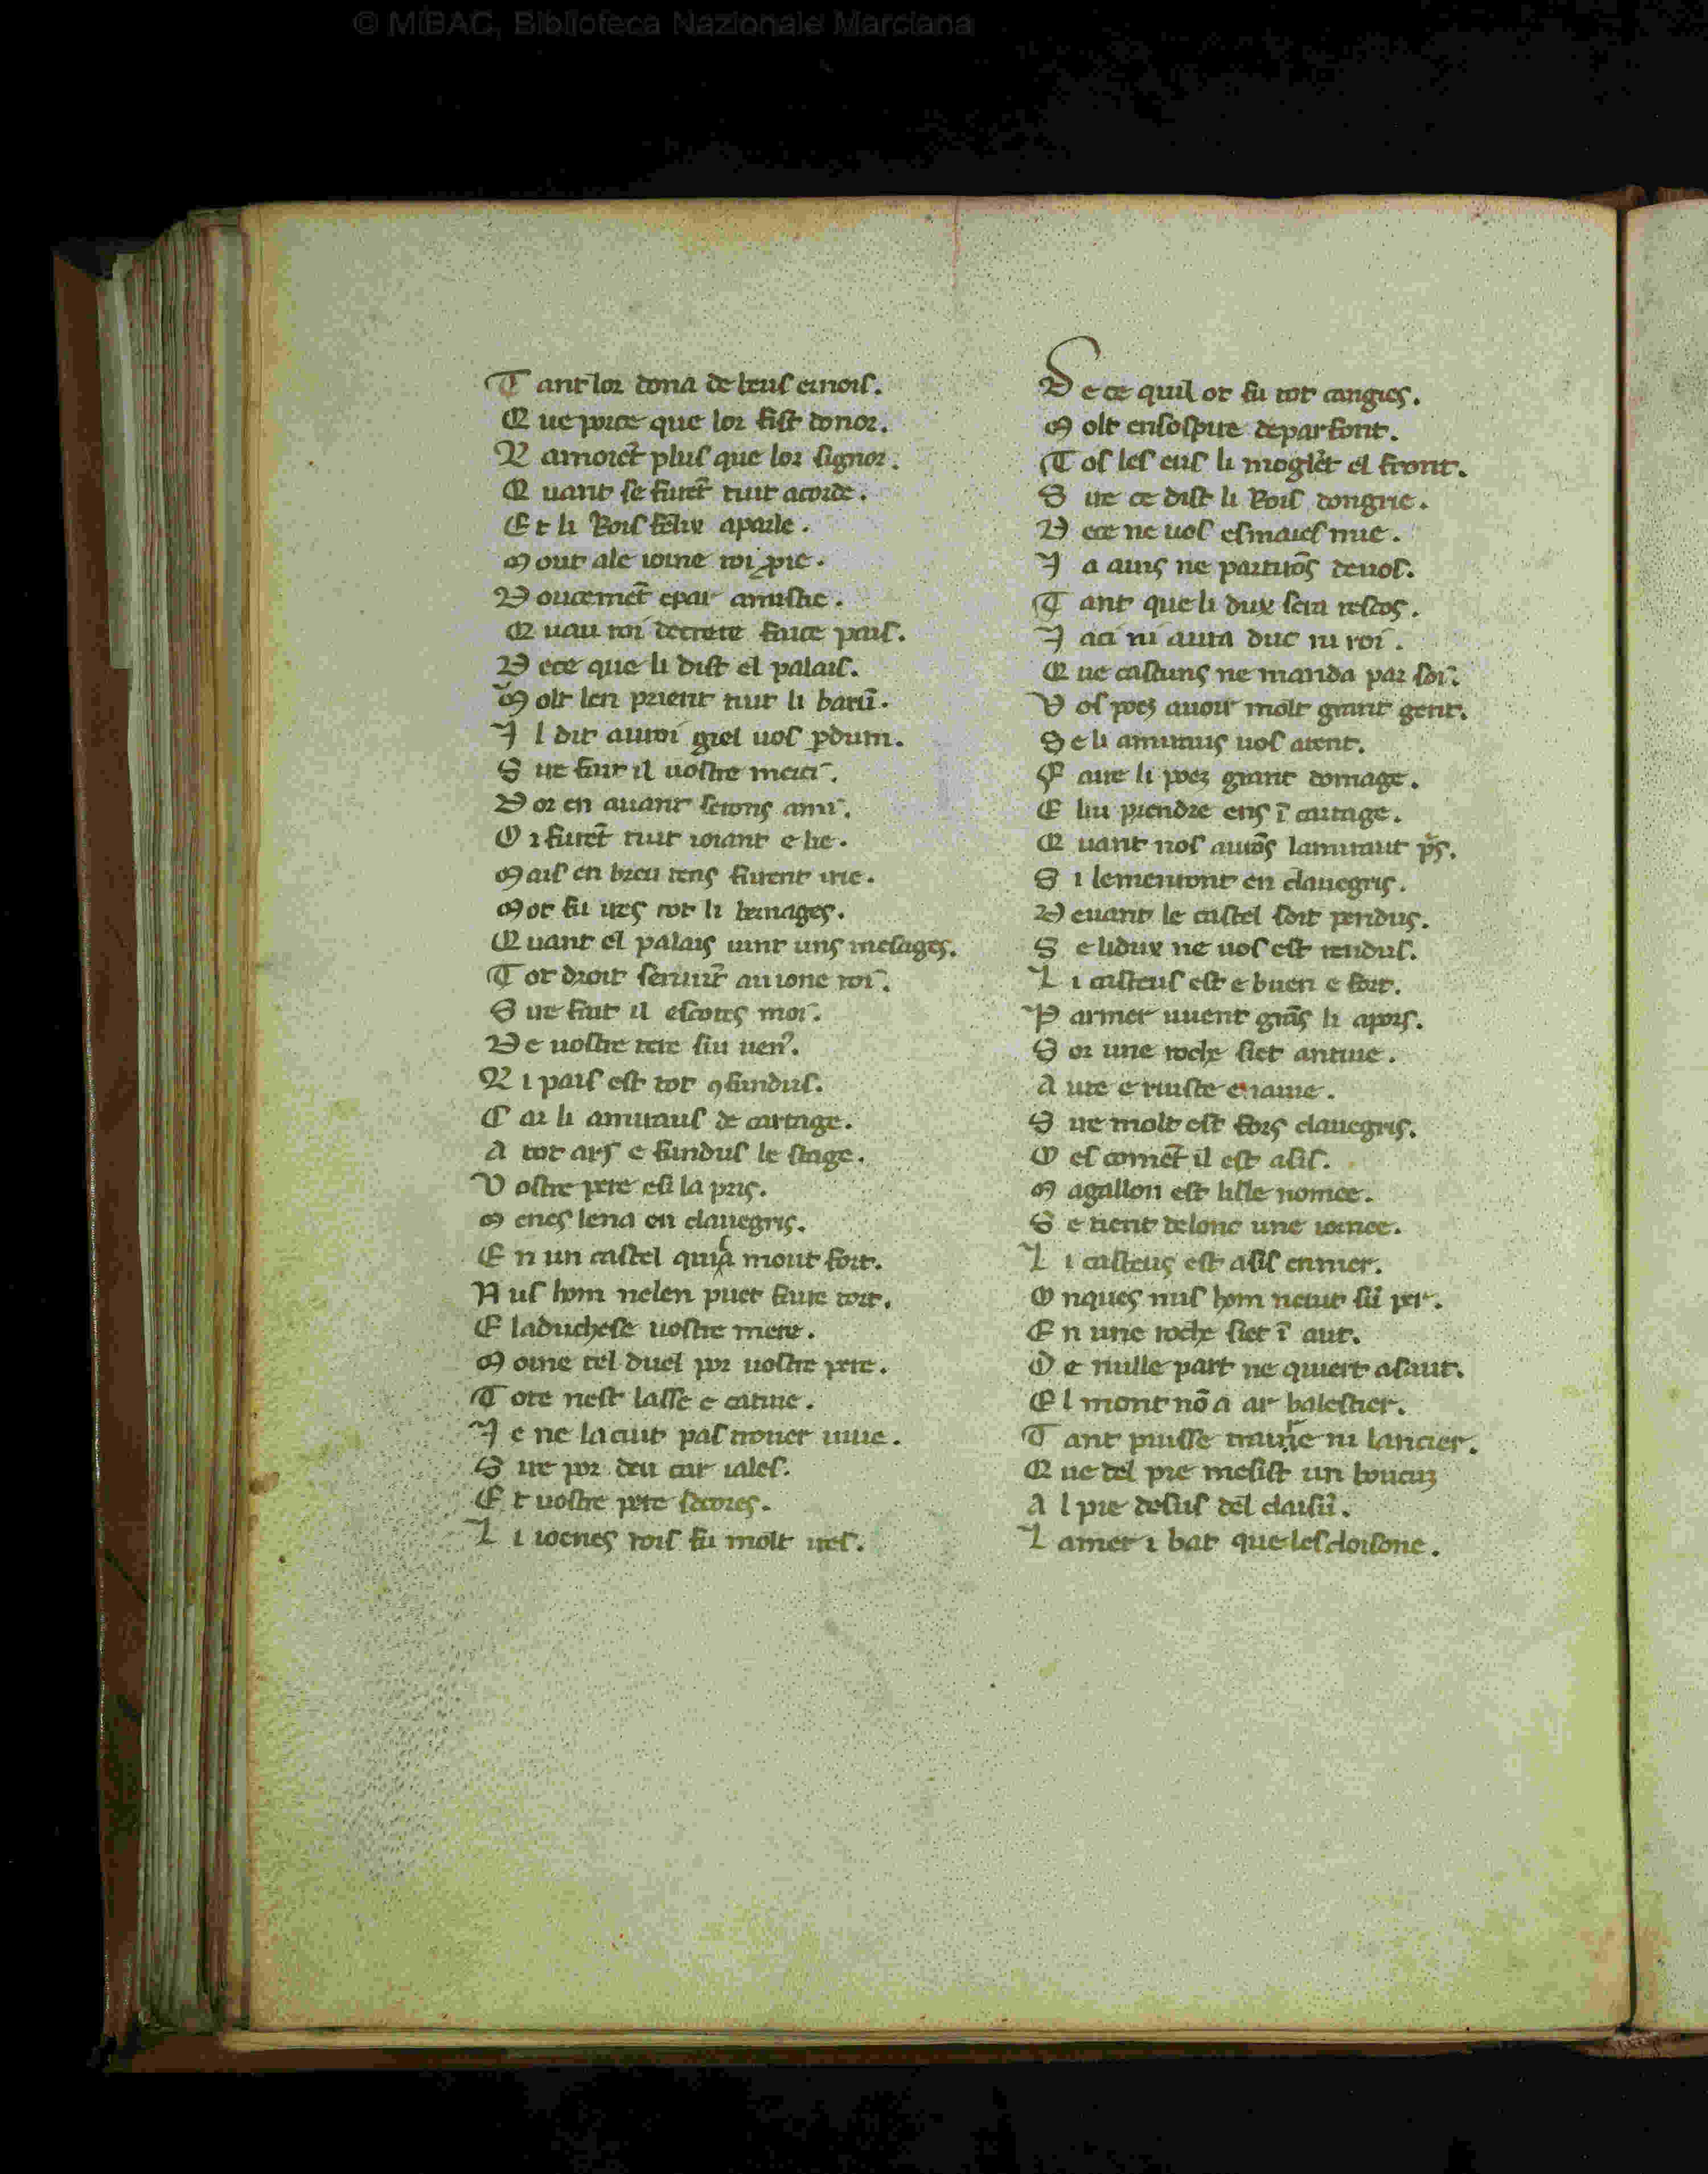 © MiBAC, Biblioteca Nazionale Marciana
T ant lor dona de beus ernois.
Q ue porce que lor fist donor.
N amoret̄ plus que lor signor.
Q uant se furet̄ tuit acorde.
E t li Rois felix aparle.
M out ale ioine roi prie.
D oucemet̄ epar amistie.
Q uau roi decrete face pais.
D ece que li dist el palais.
M olt len prient tuit li barū.
I l dit auroi giel uos pdum.
S ire fait il uostre merci.
D or en auant serons ami.
O r furet̄ tuit ioiant e lie.
M ais en breu tens furent irie.
M ot fu ires tot li bernages.
Q uant el palais uint uns mesages.
T ot droit senuit̄ au ione roi.
S ire fait il escotes moi.
D e uostre tere siu uen᾽.
N i pais est tot ꝯfundus.
C ar li amiraus de cartage.
A tot ars e fundus le stage.
V ostre pere esi la pris.
M enes lena en clauegris.
E n un castel quia mout fort.
N us hom nelen puet faire tort.
E laduchese uostre mere.
M oine tel duel por uostre pere.
T ote nest lasse e catiue.
I e ne lacuit pas trouer uiue.
S ire por deu car iales.
E t uostre pere secores.
L i ioenes rois fu molt ires.
D e ce quil ot fu tot cangies.
M olt ensospire deparfont.
T os les eus li moglet̄ el front.
S ire ce dist li Rois dongrie.
D ece ne uos esmaies mie.
I a ains ne partirōs deuos.
T ant que li dux sera rescos.
I aci ni aura duc ni roi.
Q ue cascuns ne manda par soi.
V os poez auoir molt grant gent.
S e li amiraus uos atent.
F aire li poez grant domage.
E lui prendre ens ī cartage.
Q uant nos aurōs lamiraut p̄s.
S i lemenront en clauegris.
D euant le castel soit pendus.
S e lidux ne uos est rendus.
L i casteus est e buen e fort.
P armer uuent grās li apors.
S or une roche siet antiue.
A ute e ruiste e naiue.
S ire molt est fors clauegris.
O es comet̄ il est asis.
M agallon est lisle nomee.
S e tient delonc une iornee.
L i casteus est asis enmer.
O nques nus hom neuit sū per.
E n une roche siet ī aut.
D e nulle part ne quiert asaut.
E l mont nō a ar balestier.
T ant puisse traire ni lancier.
Q ue del pie mesist un boucuz
A l pie desus del claisū.
L amer i bat que les cloisone.